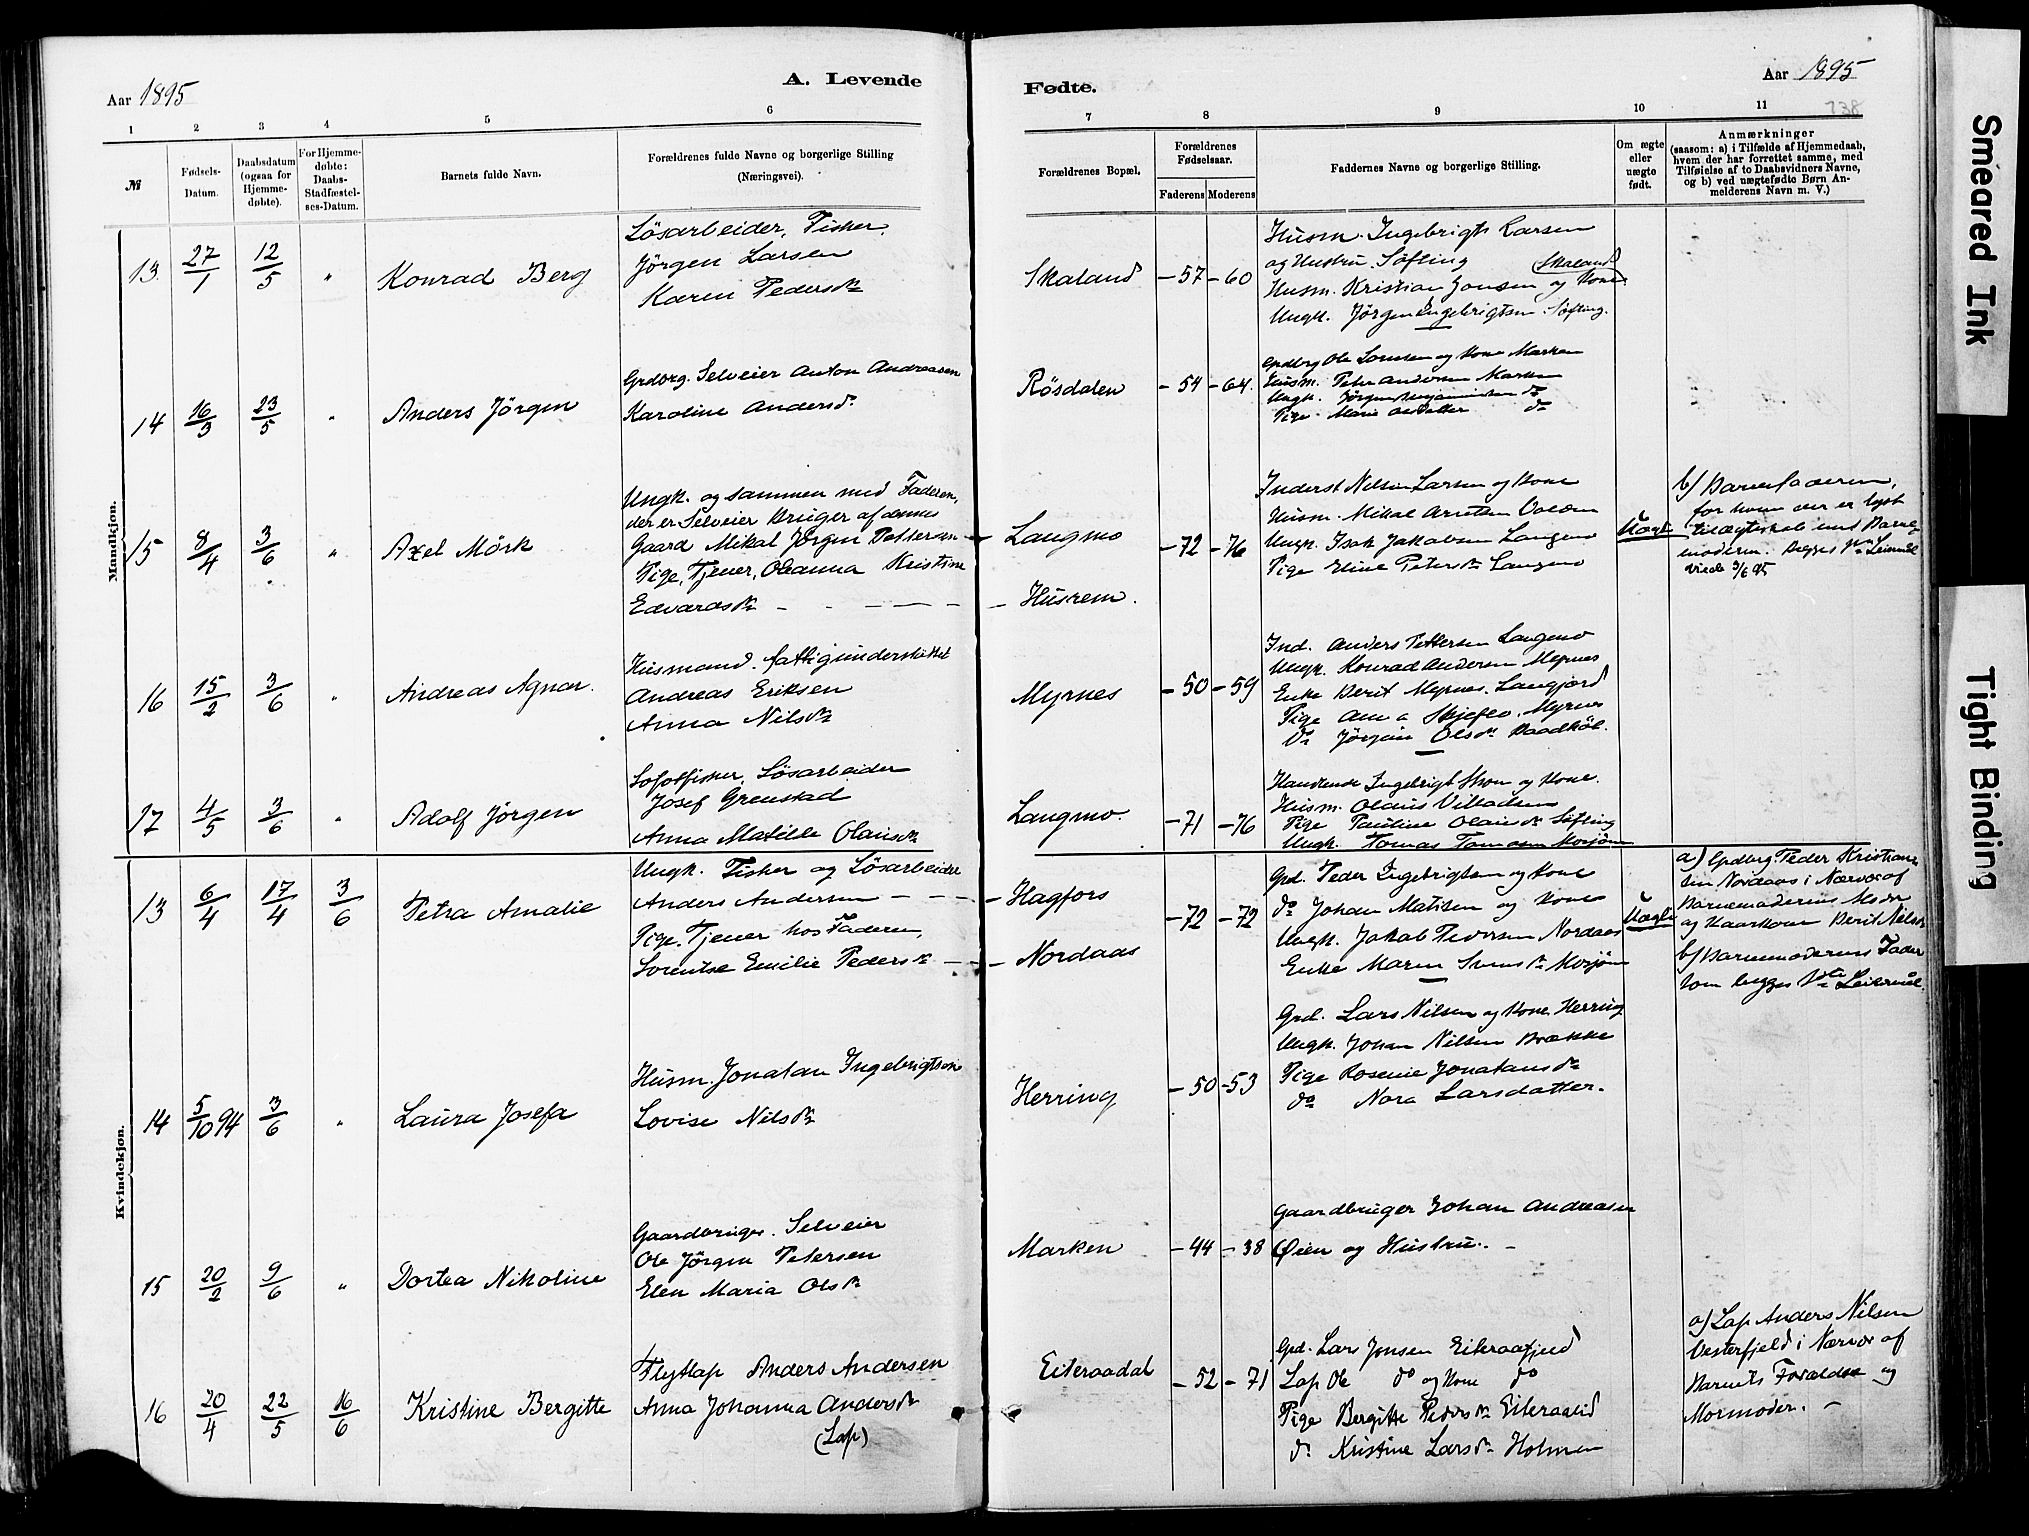 Aar 1895
A. Levende
1 2 3 4 5 6
№
Fødsels-
Datum.
Daabsdatum
(ogsaa for
Hjemme-
døbte).
For Hjemme-
døbte:
Daabs-
Stadfæstel-
ses-Datum.
Barnets fulde Navn.
Forældrenes fulde Navne og borgerlige Stilling
(Næringsvei).
Mandkjøn.
13 27/1 12/5 " Konrad Berg
Lösarbeider, Fisker,
Jörgen Larsen
Karen Pedersdr
14 16/3 23/5 " Anders Jörgen
Grdbrg. Selveier Anton Andreasen
Karoline Andersdr
15 8/4 3/6 " Axel Mörk
Ungk. og sammen med Faderen,
der er Selveier Bruger af dennes
Gaard Mikal Jörgen Pettersen
Pige, Tjener, Oleanna Kristine
Edvardsdr
16 15/2 3/6 " Andreas Agnar.
Husmand. fattigunderstöttet
Andreas Eriksen
Anna Nilsdr
17 4/5 3/6 " Adolf Jörgen
Lofotfisker, Lösarbeider
Josef Grenstad
Anna Matilde Olausdr
Kvindekjøn.
13 6/4 17/4 3/6 Petra Amalie
Ungk. Fisker og Lösarbeider
Anders Andersen
Pige. Tjener hos Faderen,
Lorentse Emilie Pedersdr
14 5/10 94 3/6 " Laura Josefa
Husm. Jonatan Ingebrigtsen
Lovise Nilsdr
15 20/2 9/6 " Dortea Nikoline
Gaardbruger. Selveier
Ole Jörgen Petersen
Elen Maria Olsdr
16 20/4 22/5 16/6 Kristine Bergitte
Flytlap Anders Andersen
Anna Johanna Andersdr
(Lap)
Fødte.
Aar 1895
138
7 8 9 10 11
Forældrenes Bopæl.
Forældrenes
Fødselsaar.
Faderens Moderens
Faddernes Navne og borgerlige Stilling.
Om ægte
eller
uægte
født.
Anmærkninger
(saasom: a) i Tilfælde af Hjemmedaab,
hvem der har forrettet samme, med
Tilføielse af to Daabsvidners Navne,
og b) ved uægtefødte Børn An-
melderens Navn m. V.)
Skaland -57 -60
Husm. Ingebrigt Larsen
og Hustru. Söfting Skaland
Husm. Kristian Jonsen og Kone
Ungk. Jörgen Ingebrigtsen Söfting.
Rösdalen -54 -64.
Grdbrg Ole Larsen og Kone Marken
Husm. Peter Andersen Marken
Ungk. Jörgen Benjaminsen do
Pige Marie do
Langmo -72 -76
Husrem.
Inderst Nelsen Larsen og Kone
Husm. Mikal
Ungk. Isak Jakobsen Langmo
Pige Eline Petersdr Langmo
Uægte
b) Barnefaderen,
for hvem der er lyst
til Ægteskab med Barne-
moderen. Begges 1ste Leiermål
Viede 3/6 95
Myrnes -50 -59
Ind. Anders Pettersen Langmo
Ungk. Konrad Andersen Myrnes
Enke Berit Myrnes, Langjord
Pige Skjeflo, Myrnes
do Jörgine Olsdr Baadköl.
Langmo. -71 -76
Handlende Ingebrigt og Kone.
Husm. Olaus Villadsen
Pige Pauline Olausdr Söfting
Ungk. Tomas Tomasen Mosjöen
Hagfors
Nordaas
-72 -72
Grd. Peder Ingebrigtsen og Kone
do Johan Matisen og Kone
Ungk. Jakob Pedersen Nordaas
Enke Maren Svensdr Mosjöen
Uægte
a) Grdbrg. Peder Kristian-
sen Nordaas i Nærvær af
Barnemoderens Moder
og Kaarkone Berit Nilsdr
b) Barnemoderens Fader
Som begges 1ste Leiermål.
Herring -50 -53
Grd. Lars Nilsen og Kone Herring
Ungk. Johan Nilsen Brække
Pige Rosenie Jonatansdr
do Nora Larsdatter.
Marken -44 -38
Gaardbruger Johan Andreasen
Øien og Hustru.
Eiteraadal -52 -71
Grd. Lars Jonsen Eiteraafjeld
Lap Ole do og Kone do
Pige Bergitte Pedersdr Eiteraalid
do Kristine Larsdr Holmen
a) Lap Anders Nilsen
Vesterfjeld i Nærvær af
Barnets Forældre og
Mormoder.
Smeared Ink
Tight Binding